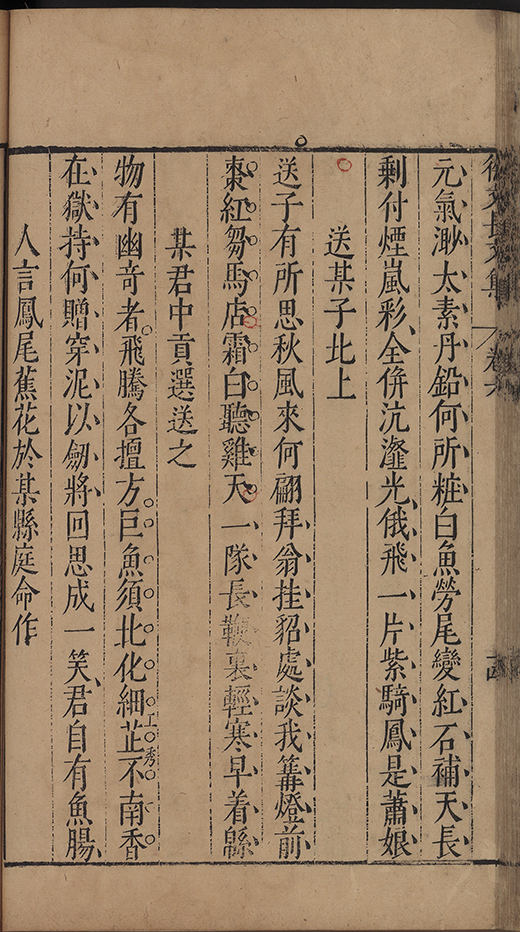 徐文長文集 卷六
元氣渺太素丹鉛何所粧白魚勞尾變紅石補天長
剩付煙嵐彩全併沆瀣光俄飛一片紫騎鳳是蕭娘
送某子北上
送子有所思秋風來何翩拜翁挂貂處談我篝燈前
棗紅芻馬店霜白聽雞天一隊長鞭裏輕寒早着緜
某君中貢選送之
物有幽奇者飛騰各擅方巨魚須北化細芷不南香
工秀
在嶽持何贈穿泥以劒將回思成一笑君自有魚腸
人言鳳尾蕉花於某縣庭命作